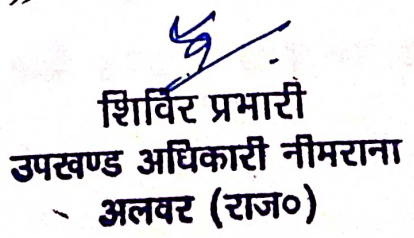 शिविर प्रभारी
उपखण्ड अधिकारी नीमराना
अलवर (राज०)